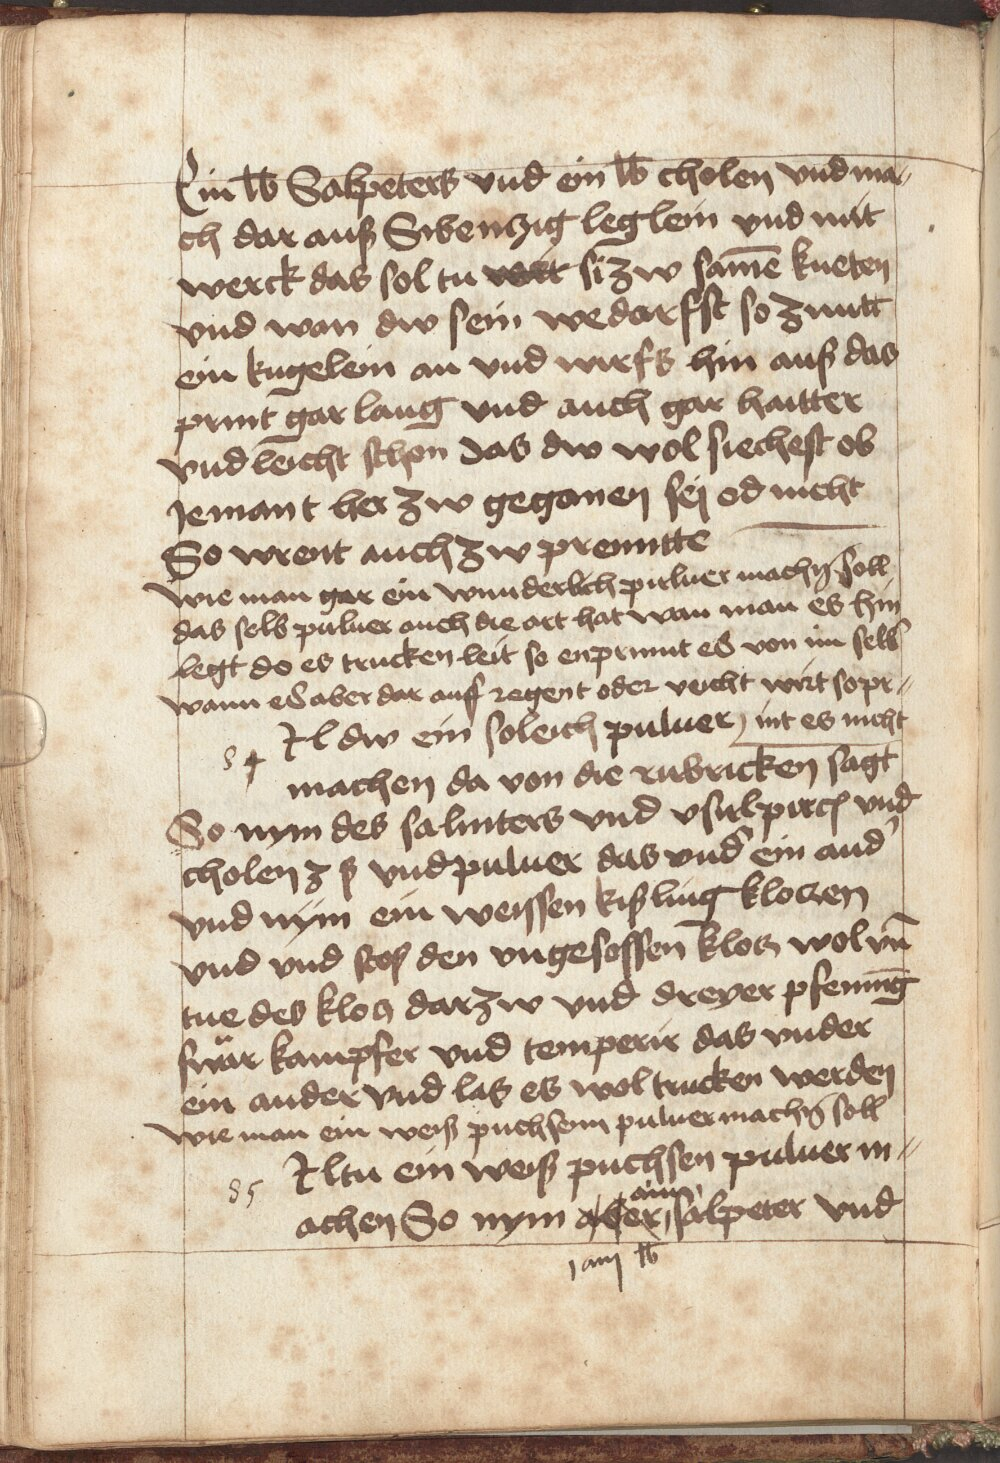 Ein lb Salpeters vnd ein lb cholen vnd ma〃
ch dar auß Sibenczig leglein vnd mit
werck das sol tu si zw samē kneten
vnd wan dw sein wedarfst so zuntt
ein kugelein an vnd wirfs hin auß das
print gar lang vnd auch gar haitter
vnd leicht schon das dw wol siechest ob
iemant her zw geganen sej od nicht
So wrent auch zw prenntte
Wie man gar ein wunderlich puluer machn̄ soll
das selb puluer auch die art hat wan man es hin
legt do es trucken leit so enprinnt es von im selb
wann es aber dar auf regent oder veicht wirt so pr〃
int es nicht
84 Il dw ein soleich puluer
machen da von die rubricken sagt
So nym des saliters vnd vnd
cholen z ß vnd puluer das vnd ein and
vnd nym ein weissen kißling kloczen
vnd vnd stoß den vngesossen klocz wol vn̄
tue des klocz dar zw vnd dreyer pfening
swär kampfer vnd temperir das vnder
ein ander vnd las es wol trucken werden
Wie man ein weiß puchsenn puluer machn̄ soll
85 Il tu ein weiß puchsen puluer m〃
achen So nym ain salpeter vnd
lb